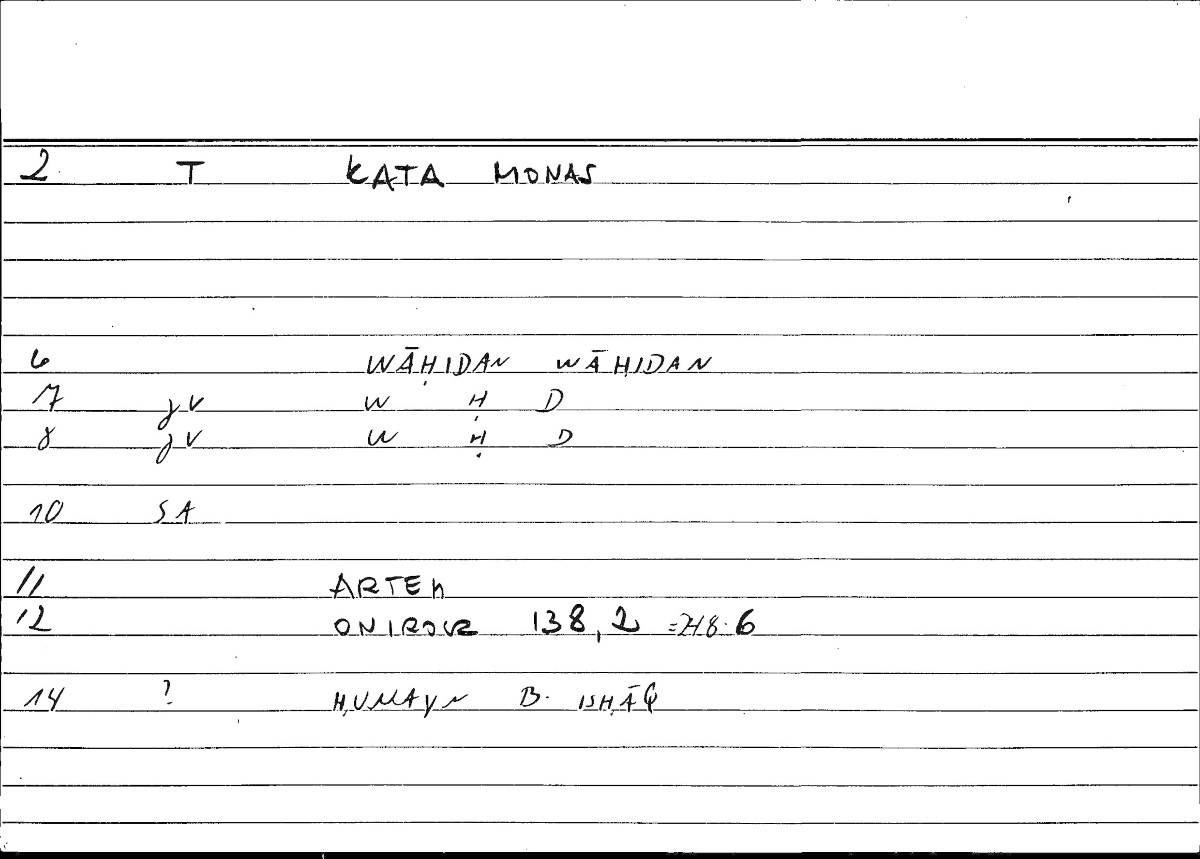 2 T KATA MONAS
6 WĀḤIDAN WĀḤIDAN
7 gV W Ḥ D
8 gV W Ḥ D
10 SA
11 ARTEM
12 ONIROCR 138,2 = 248.6
14 ? ḤUMAYN B. ISḤĀQ